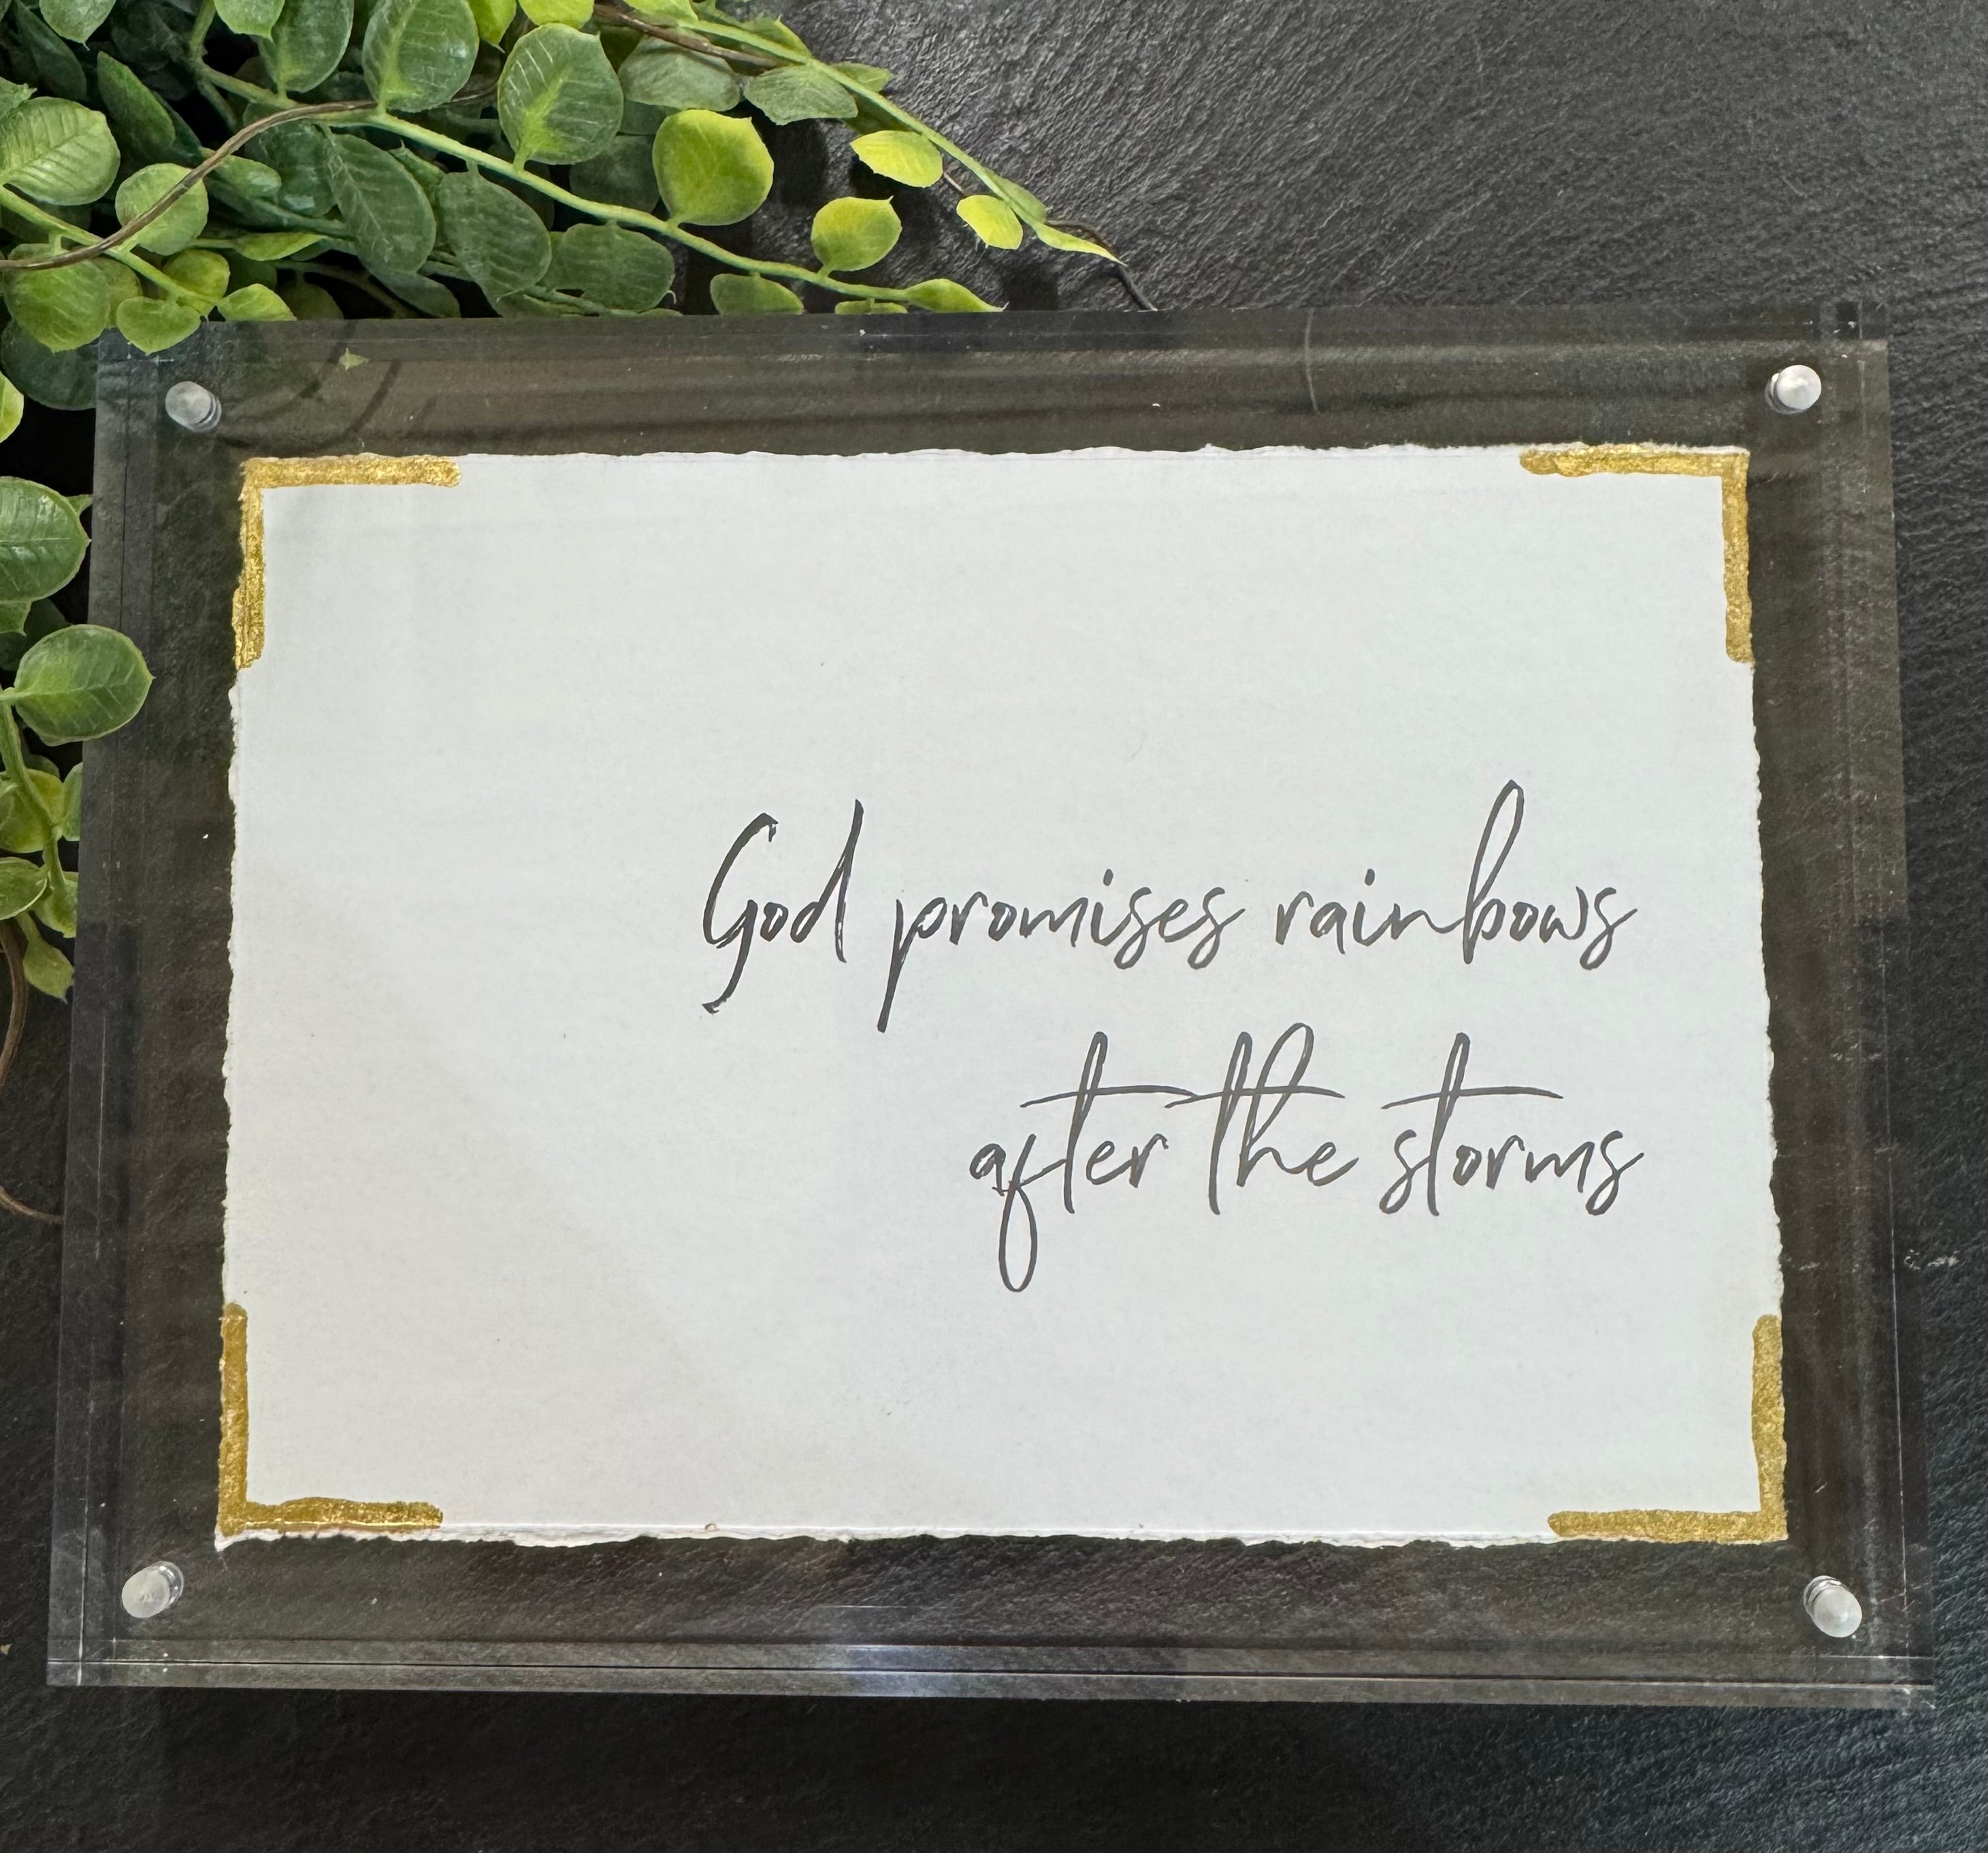 God promises rainbows
after the storms